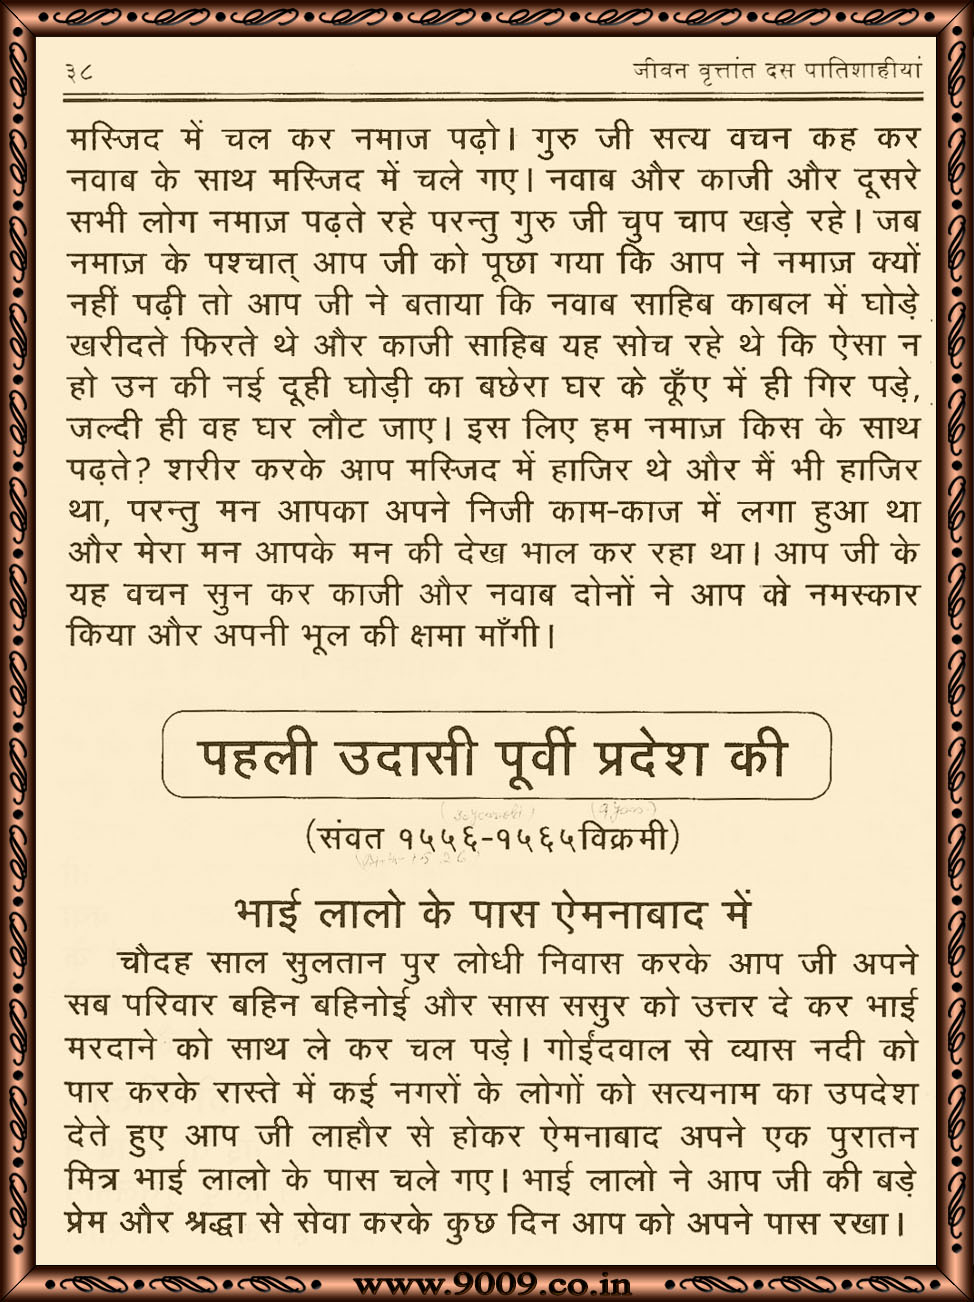 ३८ जीवन वृत्तांत दस पातिशाहीयां
मस्जिद में चल कर नमाज पढ़ो। गुरु जी सत्य वचन कह कर
नवाब के साथ मस्जिद में चले गए। नवाब और काजी और दूसरे
सभी लोग नमाज़ पढ़ते रहे परन्तु गुरु जी चुप चाप खड़े रहे। जब
नमाज़ के पश्चात् आप जी को पूछा गया कि आप ने नमाज़ क्यों
नहीं पढ़ी तो आप जी ने बताया कि नवाब साहिब काबल में घोड़े
खरीदते फिरते थे और काजी साहिब यह सोच रहे थे कि ऐसा न
हो उन की नई दूही घोड़ी का बछेरा घर के कूँए में ही गिर पड़े,
जल्दी ही वह घर लौट जाए। इस लिए हम नमाज़ किस के साथ
पढ़ते? शरीर करके आप मस्जिद में हाजिर थे और मैं भी हाजिर
था, परन्तु मन आपका अपने निजी काम-काज में लगा हुआ था
और मेरा मन आपके मन की देख भाल कर रहा था। आप जी के
यह वचन सुन कर काजी और नवाब दोनों ने आप को नमस्कार
किया और अपनी भूल की क्षमा माँगी।
पहली उदासी पूर्वी प्रदेश की
(संवत १५५६-१५६५विक्रमी)
भाई लालो के पास ऐमनाबाद में
चौदह साल सुलतान पुर लोधी निवास करके आप जी अपने
सब परिवार बहिन बहिनोई और सास ससुर को उत्तर दे कर भाई
मरदाने को साथ ले कर चल पड़े। गोईंदवाल से व्यास नदी को
पार करके रास्ते में कई नगरों के लोगों को सत्यनाम का उपदेश
देते हुए आप जी लाहौर से होकर ऐमनाबाद अपने एक पुरातन
मित्र भाई लालो के पास चले गए। भाई लालो ने आप जी की बड़े
प्रेम और श्रद्धा से सेवा करके कुछ दिन आप को अपने पास रखा।
www.9009.co.in